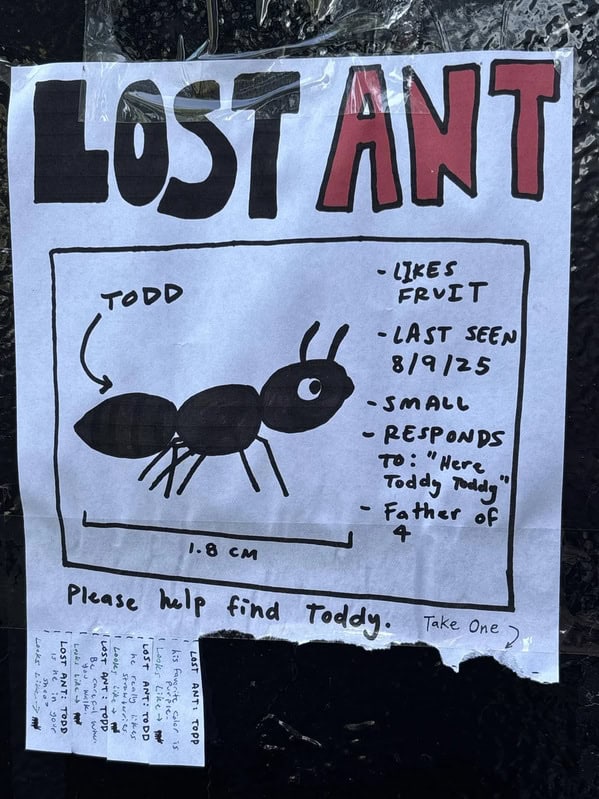 LOST ANT
TODD
- LIKES
FRUIT
- LAST SEEN
8/9/25
- SMALL
- RESPONDS
TO: "Here
Toddy Toddy"
- Father of
4
1.8 CM
Please help find Toddy.
Take One
LOST ANT: TODD
his favorite color is
purple
Looks like →
LOST ANT: TODD
he really likes
strawberries
Looks like →
LOST ANT: TODD
Be careful when
you walk
Looks like →
LOST ANT: TODD
is he in your
shoe?
Looks like →